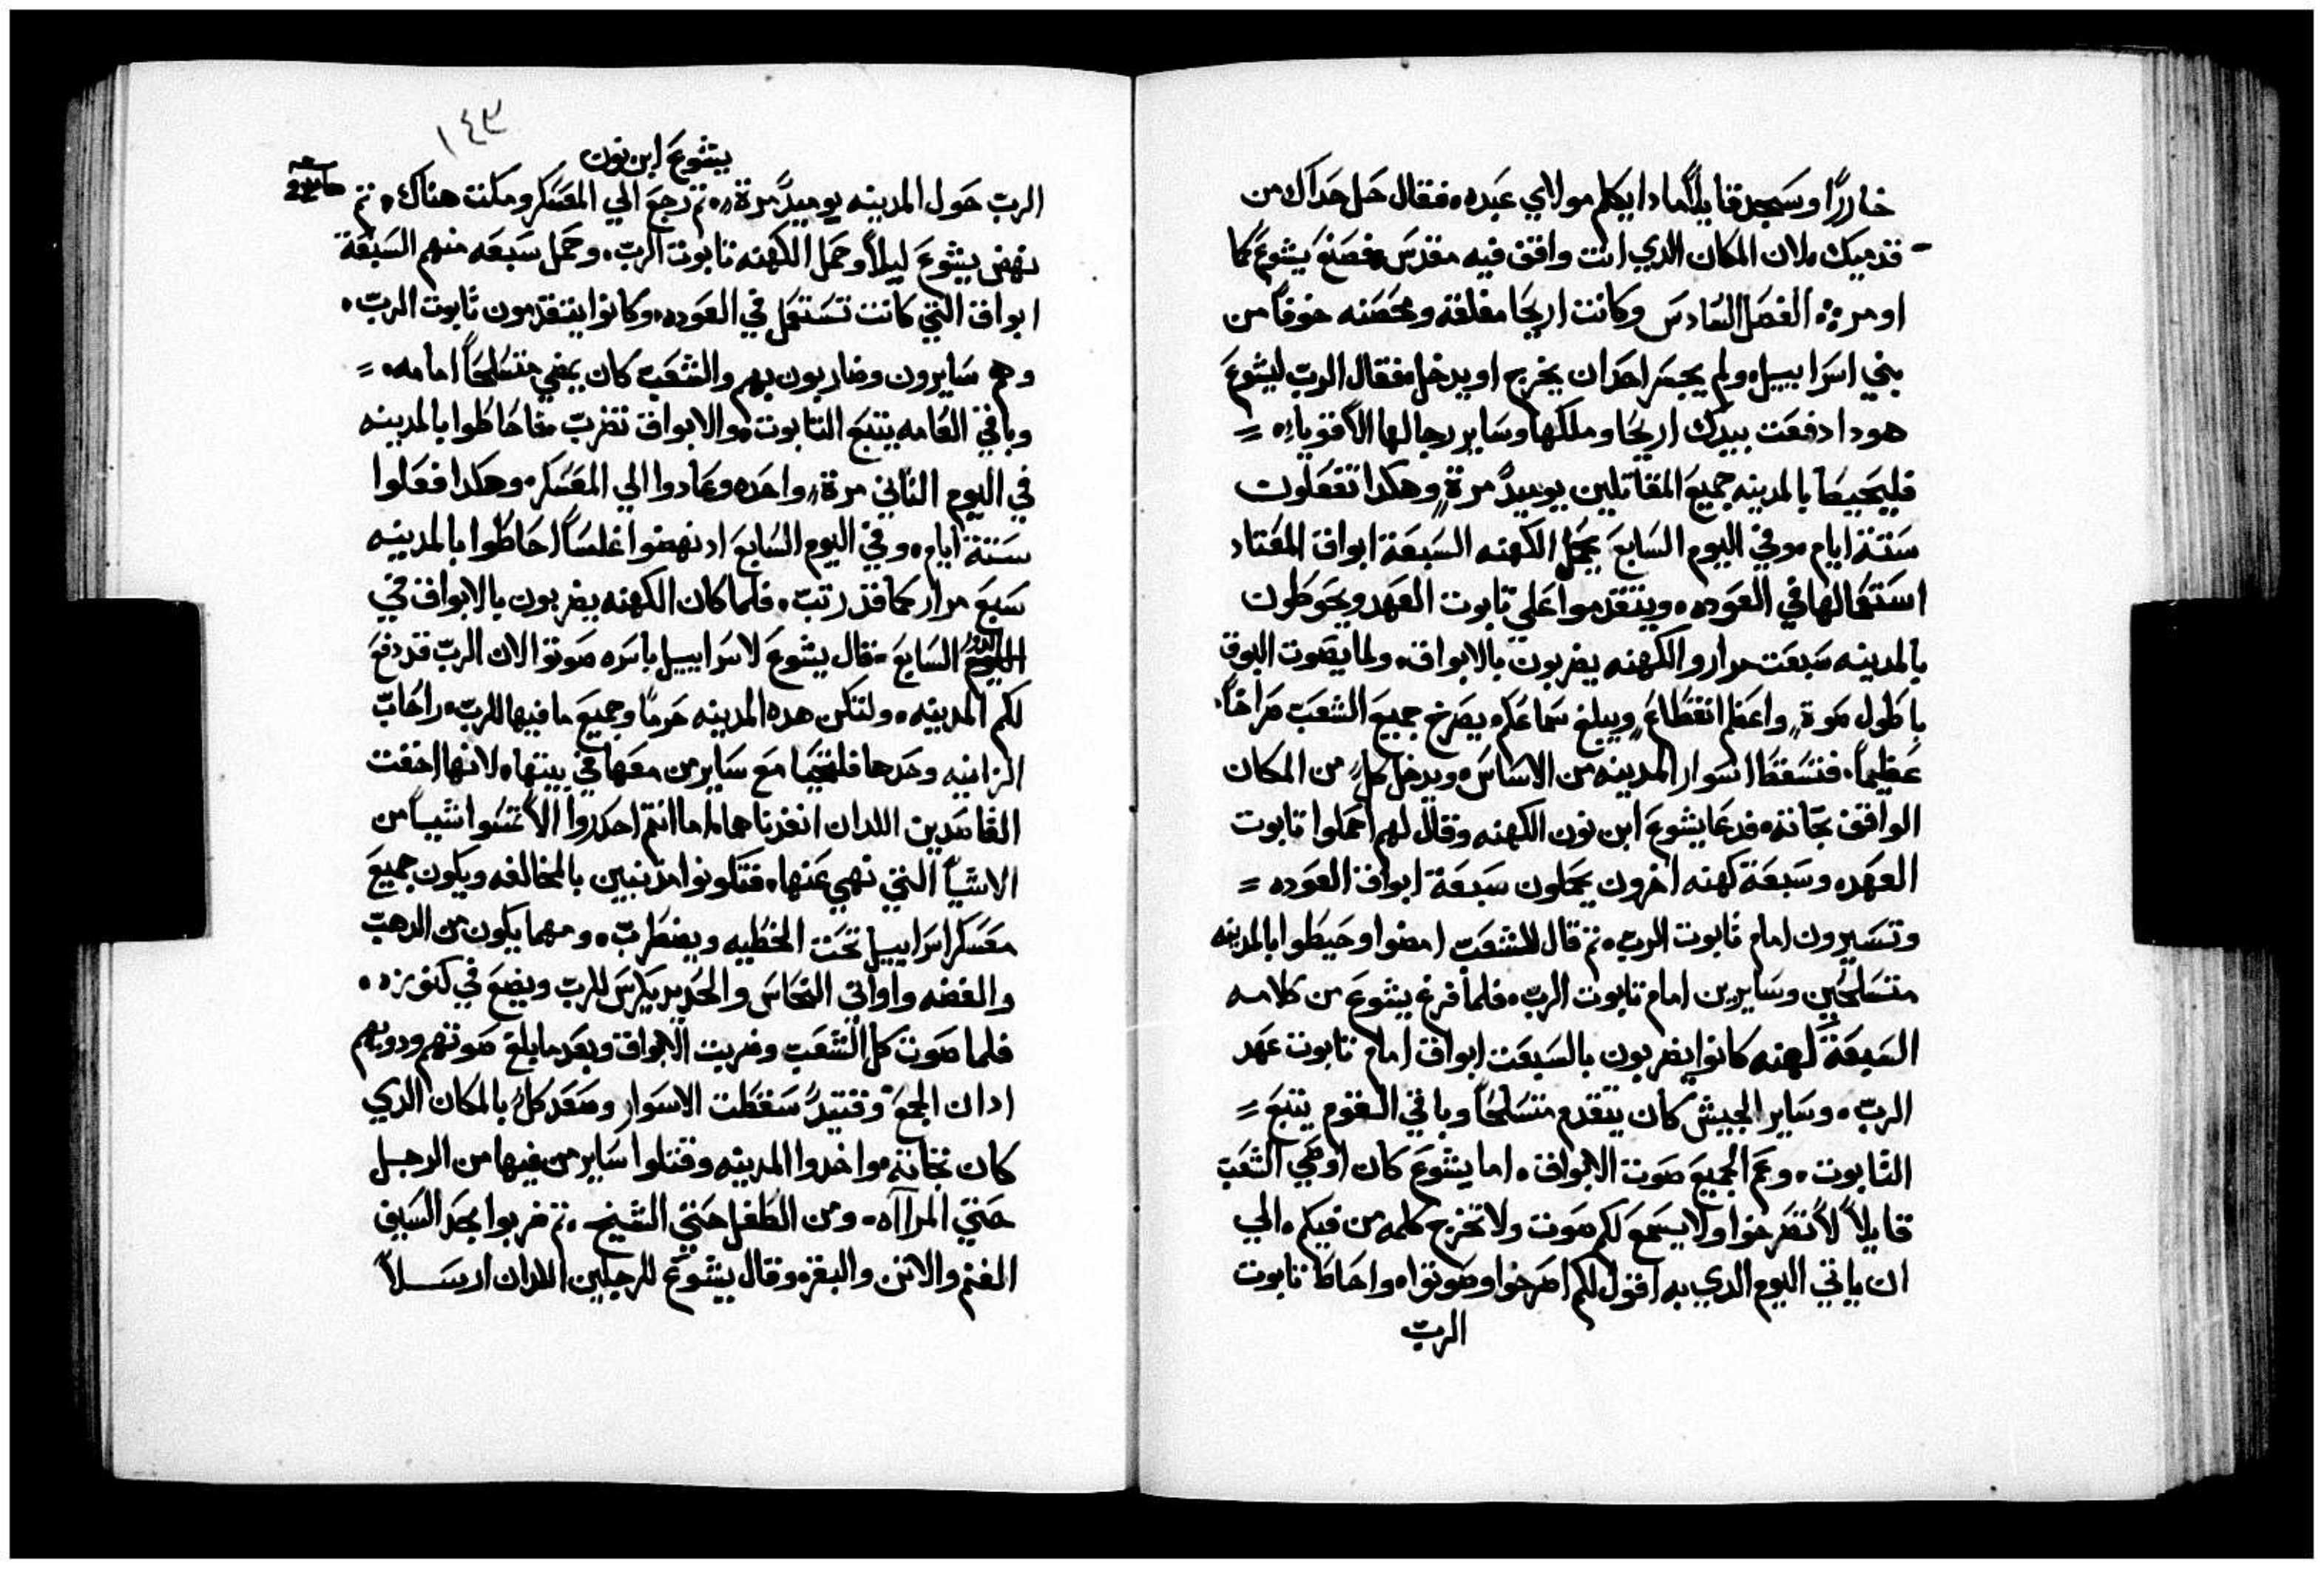 خاررًا وسَجد قايلًا ماذا يكلم مولاي عَبده، فقال حَل حَداك من
قدميك، لان المكان الدي انت واقف فيه مقدسَ، فصَنعَ يشوعَ كما
اومر ⁘ الفصَل السَادسَ وكانت اريحَا مغلقة ومحَصَنه خوفًا من
بني اسَراييل، ولم يجسَر احَد ان يخرج او يدخل، فقال الربّ ليشوعَ
هودا دفعَت بيدك اريحَا وملكها وسَاير رجالها الاقوياء، =
فليحَيط بالمدينه جميعَ المقاتلين يوميدً مرةٍ، وهكدا تفعَلون
سَتة ايام، وفي اليوم السَابعَ يحمَل الكهنه السَبعَة ابواق المعَتاد
استعَمالها في العَوده، ويتقدموا علي تابوت العهد ويحَوطون
بالمدينه سَبعَت مرار والكهنه يضربون بالابواق، ولما يصَوت البوق
باطول صَوةٍ، واعظم انقطاعَ، ويبلغ سَماعَكم يصَرخ جميعَ الشعَب صَراخًا
عَظيمًا، فتسَقط اسَوار المدينه من الاسَاسَ، ويدخل كلٌ من المكان
الواقف تجَانه، فدعَا يشوعَ ابن نون الكهنه وقال لهم احملوا تابوت
العَهد، وسَبعَة كهنه اخرون يحمَلون سَبعَة ابواق العَوده =
وتسَيرون امام تابوت الربّ، ثم قال للشعَب امضوا وحَيطوا بالمدينه
متسَلحَين وسَايرين امام تابوت الربّ، فلما فرغ يشوعَ من كلامه
السَبعَة كهنه كانوا يضربون بالسَبعَت ابواق امام تابوت عَهد
الربّ، وسَاير الجيش كان يتقدم متسَلحَاً وباقي القوم يتبعَ =
التابوت، وعَم الجميعَ صَوت الابواق، اما يشوعَ كان اوصَي الشعَب
قايلاً لا تصَرخوا ولا يسَمعَ لكم صَوت ولا تخرج كلمه من فيكم، الي
ان ياتي اليوم الدي به اقول لكم اصَرخوا وصَوتوا، واحَاط تابوت
الربّ
١٤٣
يشوعَ ابن نون
الربّ حَول المدينه يوميدً مرةً، ثم رجعَ الي المعَسَكر ومكت هناك، ثم
نهض يشوعَ ليلاً وحَمل الكهنه تابوت الربّ، وحَمل سَبعَه منهم السَبعَة
ابواق التي كانت تسَتعَمل في العَوده، وكانوا يتقدمون تابوت الربّ،
وهم سَايرون وضاربون بهم والشعَب كان يمضي متسَلحَاً امامه، =
وباقي العَامه يتبعَ التابوت، والابواق تضربّ، فاحَاطوا بالمدينه
في اليوم التاني مرةً واحَده وعَادوا الي المعَسَكر، وهكدا فعَلوا
سَتة ايام، وفي اليوم السَابعَ اد نهضوا غلسَاً احَاطوا بالمدينه
سَبعَ مرار كما قد رتبّ، فلما كان الكهنه يضربون بالابواق في
السَابعَ، قال يشوعَ لاسَراييل باسَره صَوتوا لان الربّ قد دفعَ
لكم المدينه، ولتكن هده المدينه حَرمًا وجميعَ ما فيها للربّ، راحَابّ
الزانيه وحَدها فلتحَيا مَع سَاير من معَها في بيتها، لانها اخفت
القاصَدين اللدان انفدناهما، اما انتم احَدروا الا تمسَوا شياً من
الاشيأ التي نهي عَنها، فتكونوا مدنبين بالمخالفه ويكون جميعَ
معَسَكر اسَراييل تحَت الخطيه ويضطربّ، ومهما يكون من الدهبّ
والفضه واواني النحَاسَ والحَديد يكرسَ للربّ ويضعَ في كنوزه،
فلما صَوت كل الشعَب وضربت الابواق وبعَد ما بلغ صَوتهم ودويهم
ادان الجمعَ وقتيدٍ سَقطت الاسَوار وصَعَد كلٌ بالمكان الدي
كان تجَانه، واخدوا المدينه وقتلوا سَاير من فيها من الرجل
حَتي المراآه، ومن الطفل حَتي الشيخ، ثم ضربوا بحَد السَيف
الغنم والاتن والبقر، وقال يشوعَ للرجلين اللدان ارسَلاً